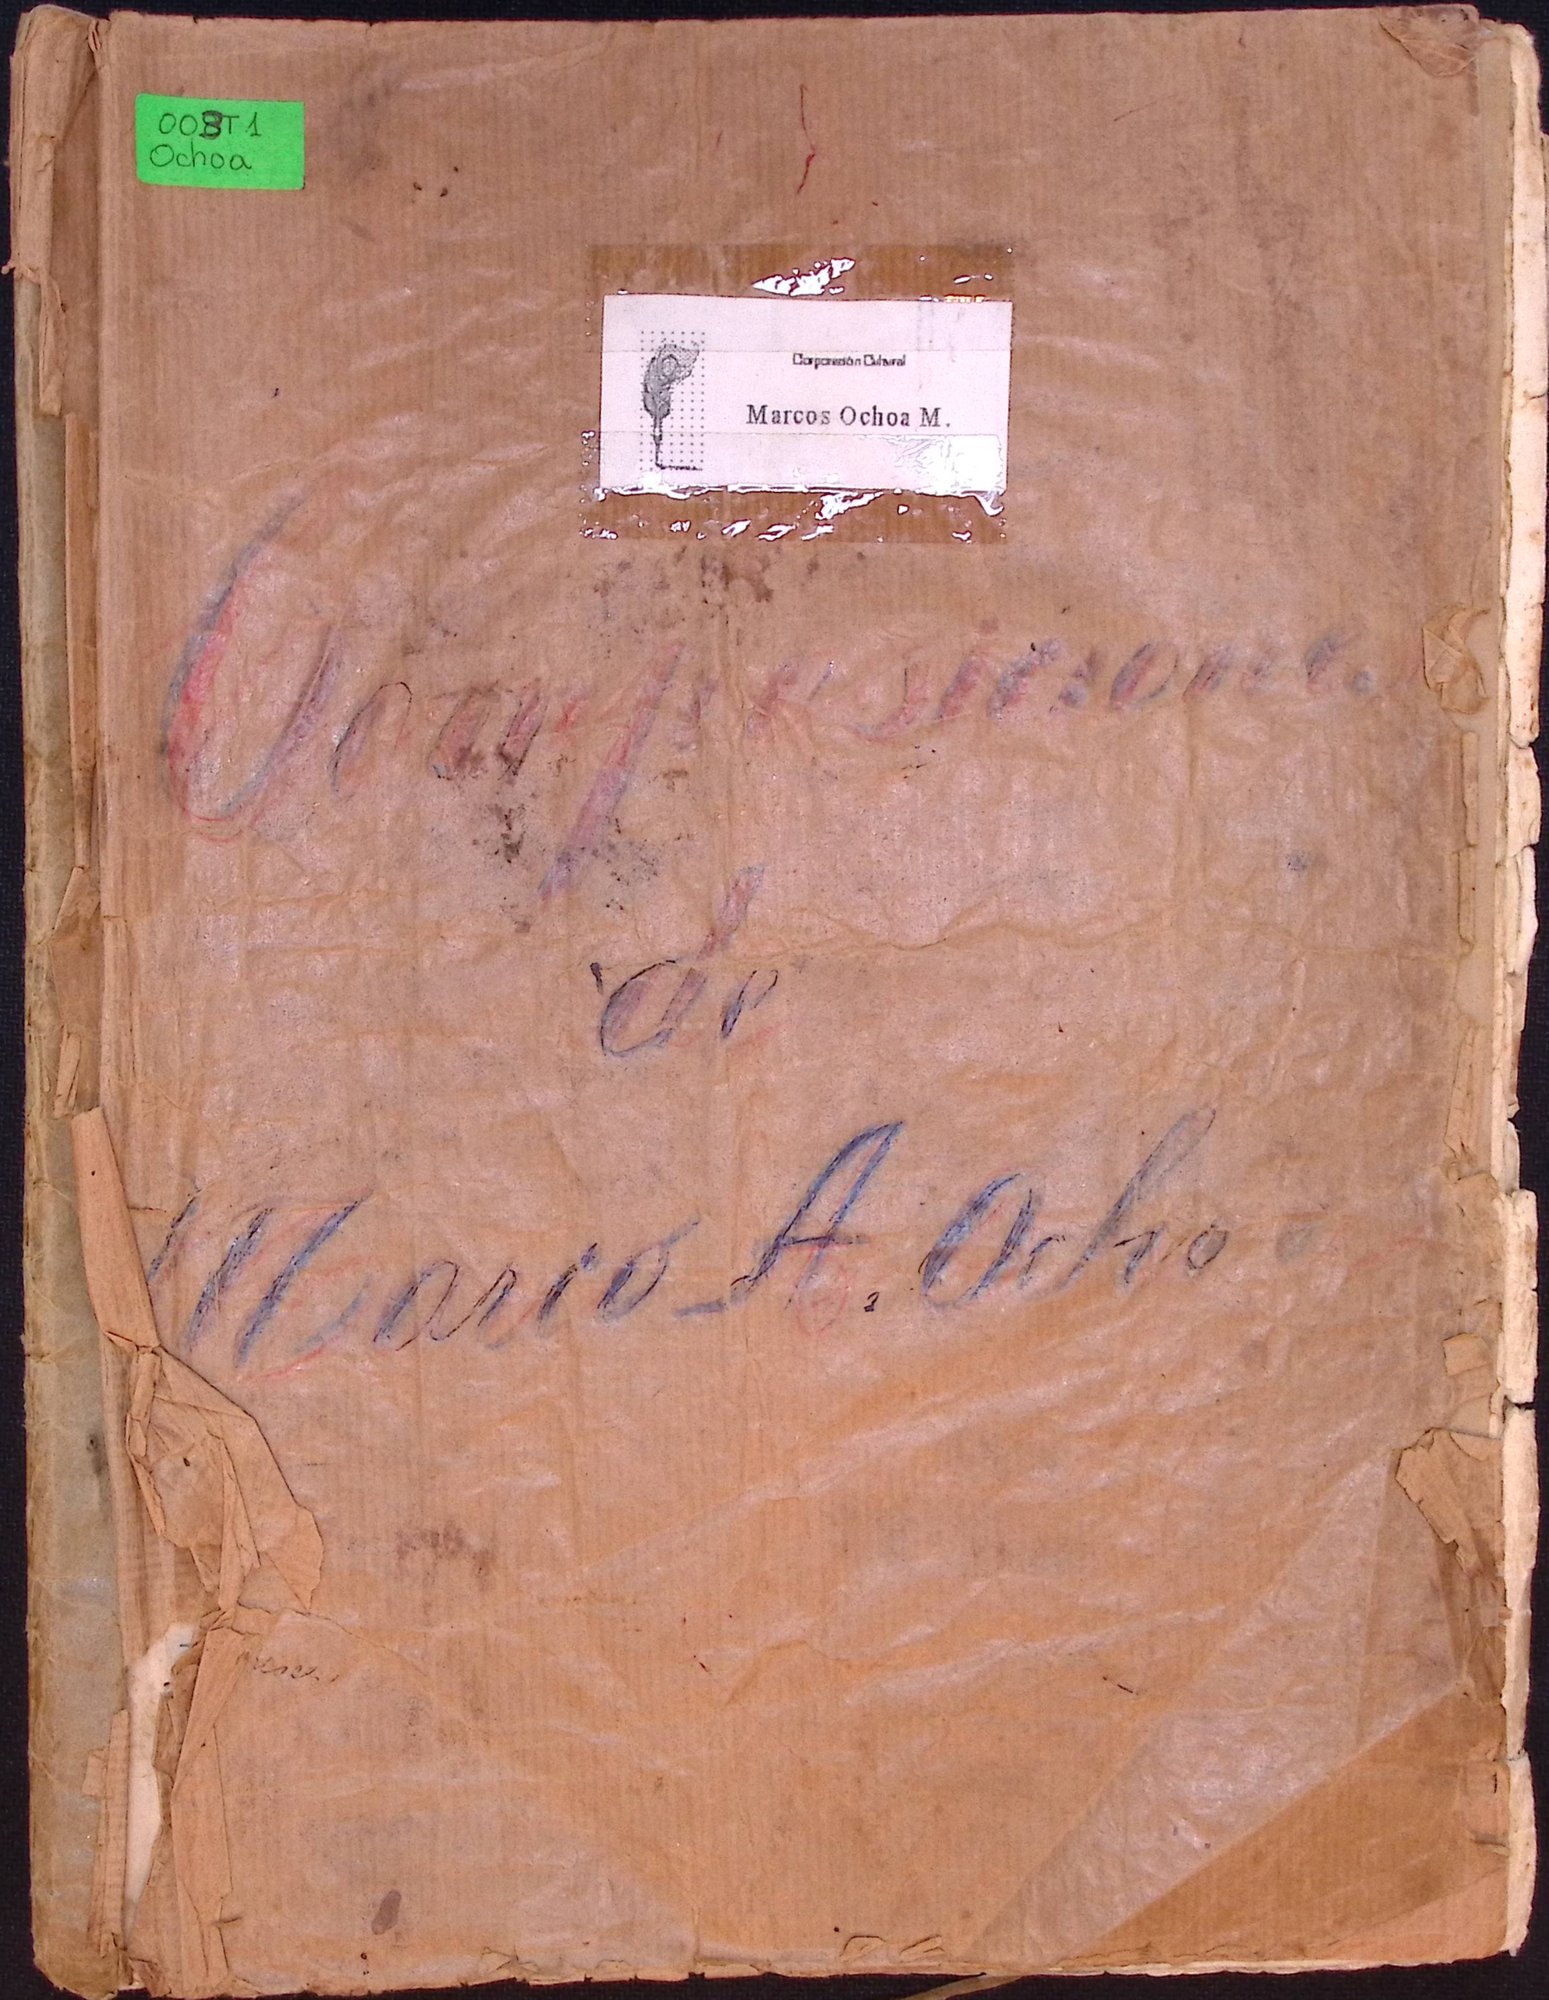 003T1
Ochoa
Corporación Cultural
Marcos Ochoa M.
Composiciones
de
Marco A. Ochoa